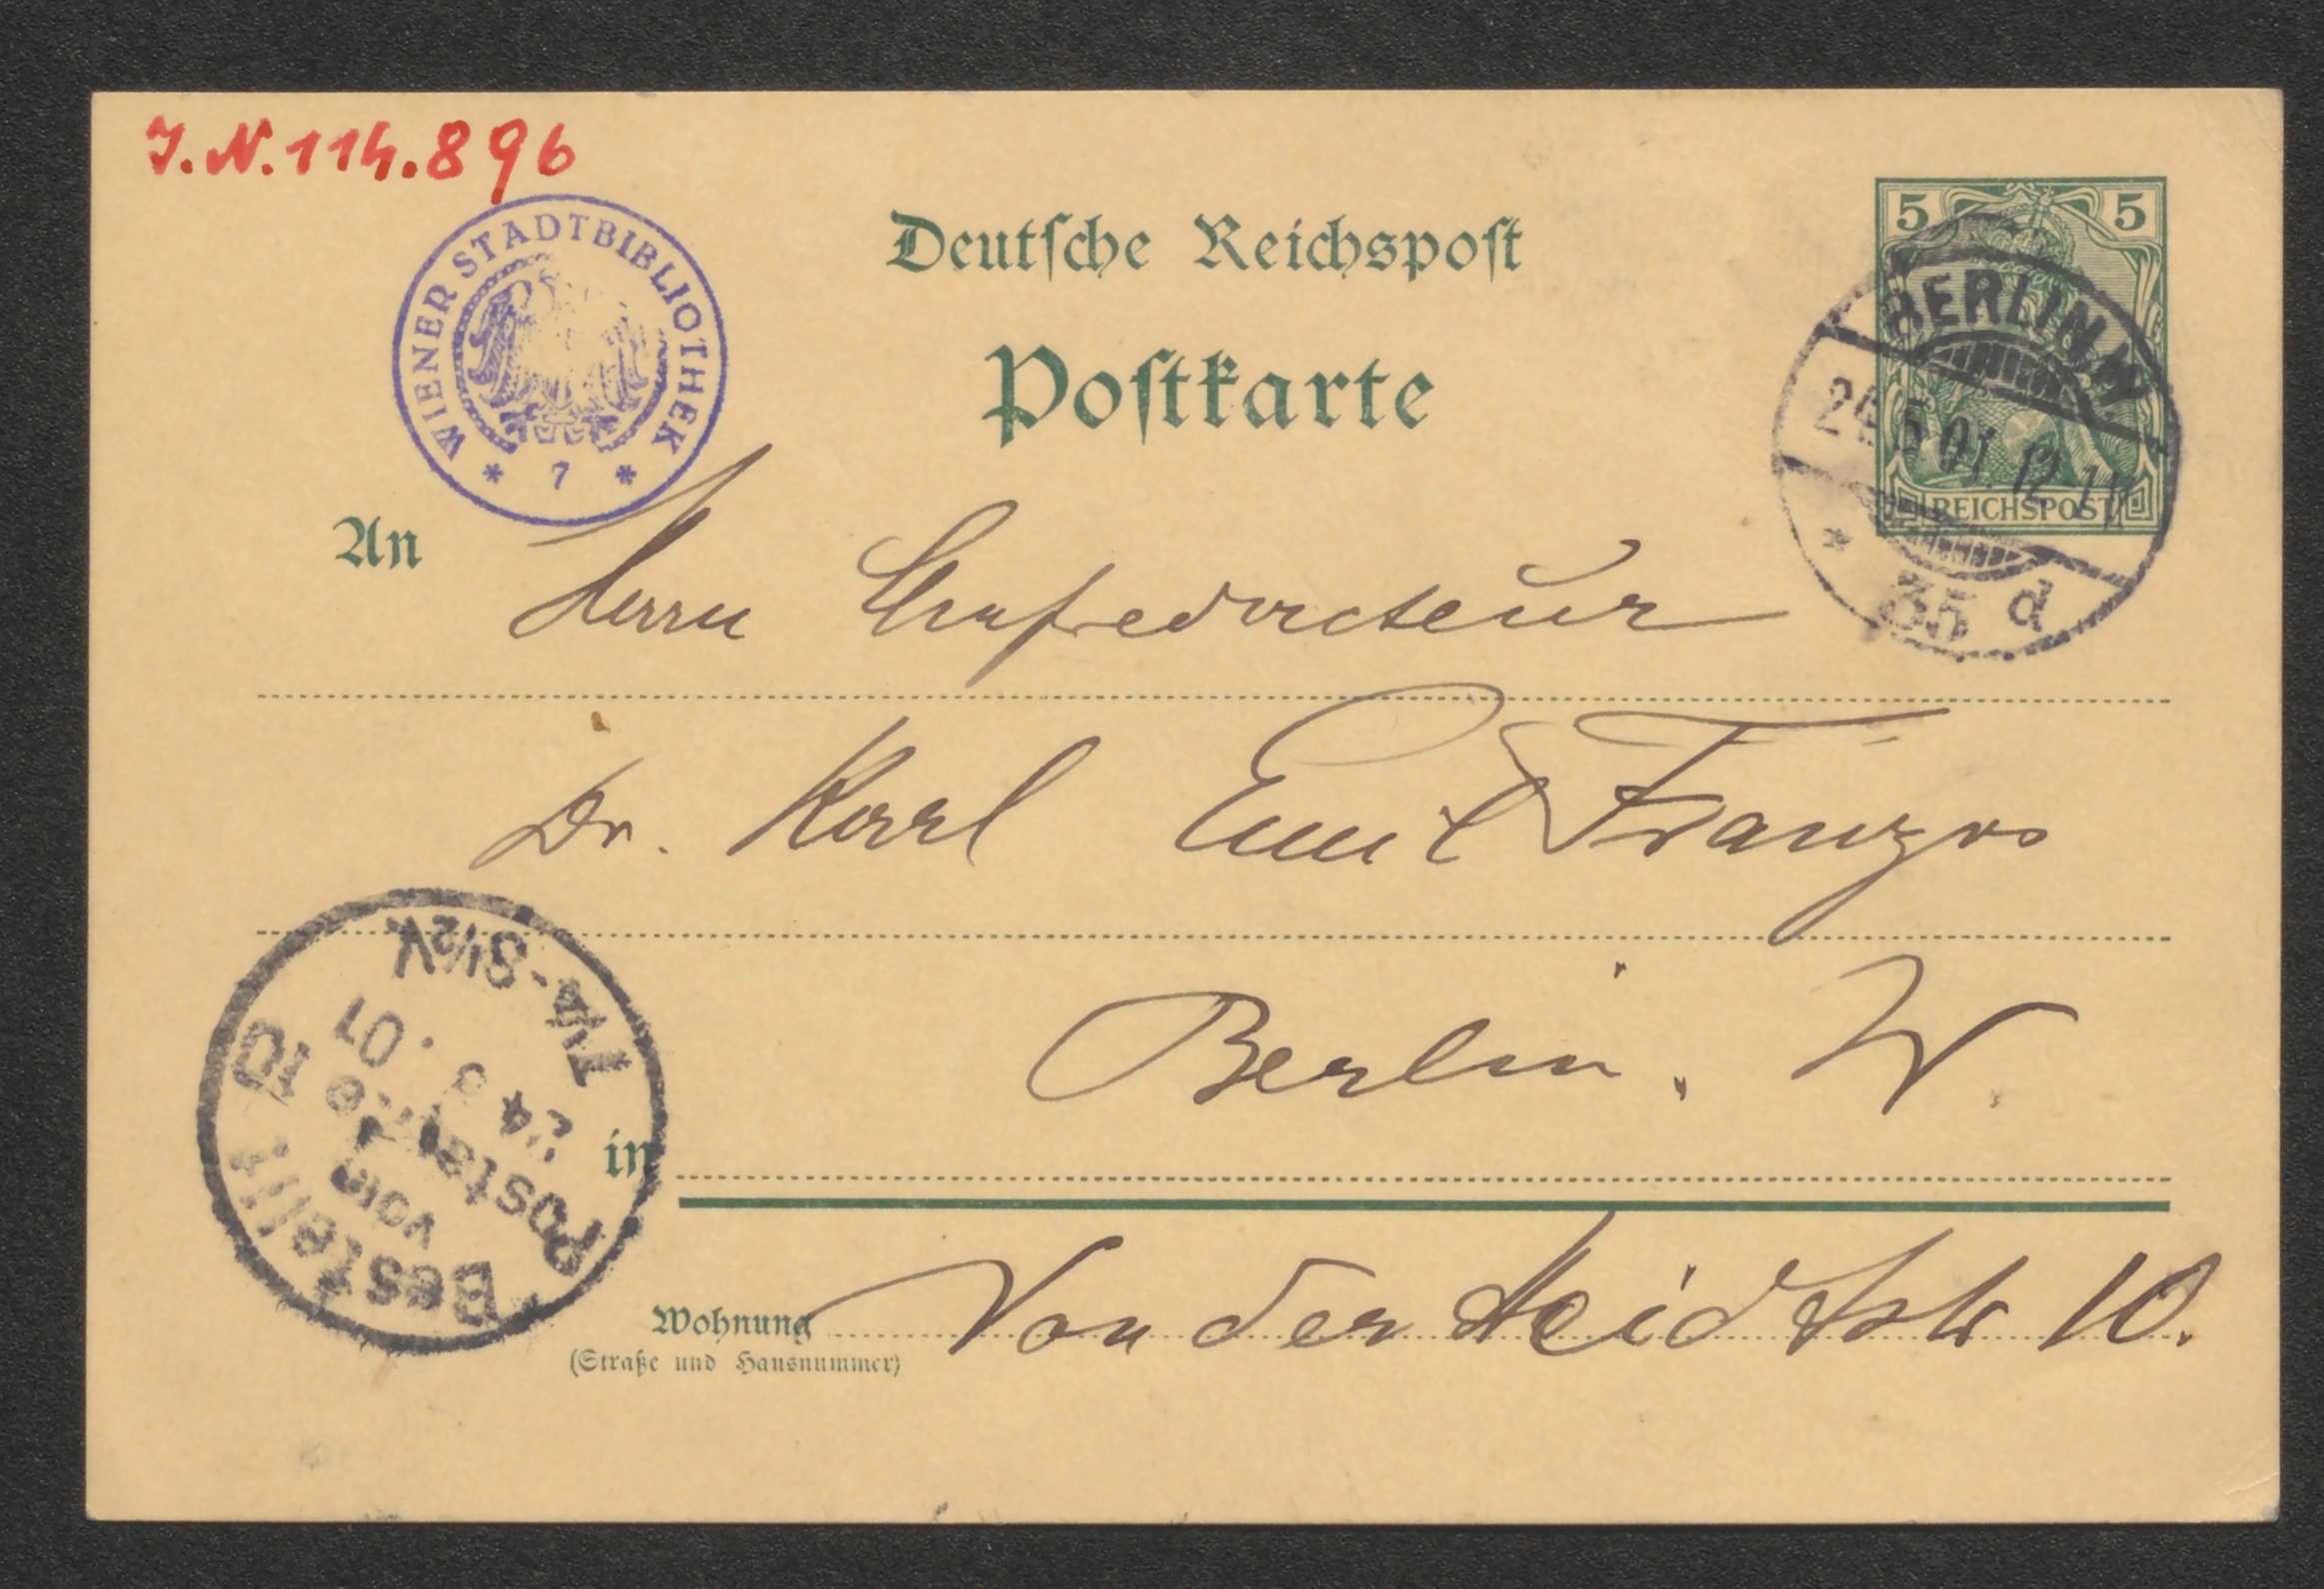 J.N.114.896
WIENER STADTBIBLIOTHEK
* 7 *
Deutsche Reichspost
Postkarte
5 5
REICHSPOST
BERLIN W.
5.01. 12-1N
* 35 d
An Herrn Chefredacteur
Dr. Karl Emil Franzos
in Berlin. W.
Wohnung Von der Heidtstr 10.
(Straße und Hausnummer)
Bestellt
vom
Postamte 10
.01
7¼-8½V.